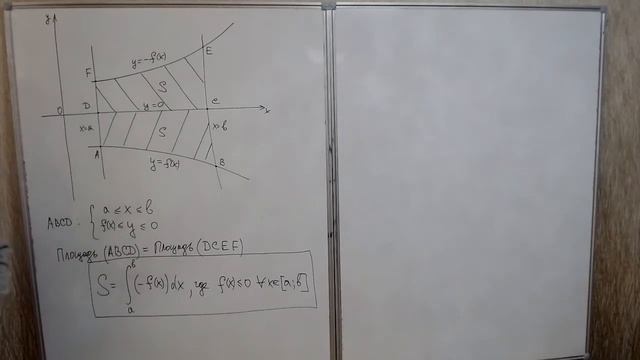 y
y=-f(x)
E
F
S
O
D
y=0
C
x
x=a
S
x=b
A
y=f(x)
B
ABCD: { a ≤ x ≤ b
f(x) ≤ y ≤ 0
Площадь (ABCD) = Площадь (DCEF)
S = ∫_a^b (-f(x)) dx, где f(x) ≤ 0 ∀x∈[a;b]